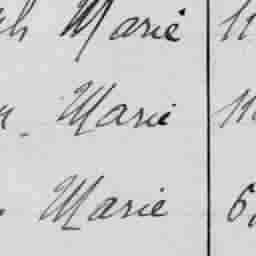 Marie 11
Marie 11
Marie 6